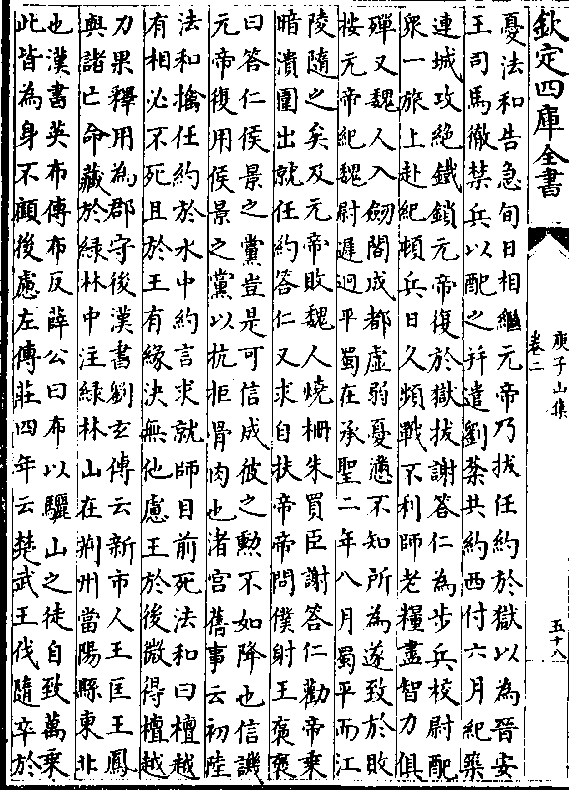 欽定四庫全書
庾子山集
卷二
五十八
憂法和告急旬日相繼元帝乃拔任約於獄以為晉安
王司馬徹禁兵以配之并遣劉棻共約西付六月紀築
連城攻絶鐵鎖元帝復於獄拔謝答仁為步兵校尉配
衆一旅上赴紀頓兵日久頻戰不利師老糧盡智力俱
殫又魏人入劔閣成都虚弱憂懣不知所為遂致於敗
按元帝紀魏尉遲迥平蜀在承聖二年八月蜀平而江
陵隨之矣及元帝敗魏人燒柵朱買臣謝答仁勸帝乗
暗潰圍出就任約答仁又求自扶帝帝問僕射王褒褒
曰答仁侯景之黨豈是可信成彼之勲不如降也信譏
元帝復用侯景之黨以抗拒骨肉也渚宫舊事云初陸
法和擒任約於水中約言求就師目前死法和曰檀越
有相必不死且於王有緣决無他慮王於後微得檀越
力果釋用為郡守後漢書劉玄傳云新市人王匡王鳳
與諸亡命藏於緑林中注緑林山在荆州當陽縣東北
也漢書英布傳布反薛公曰布以驪山之徒自致萬乗
此皆為身不顧後慮左傳莊四年云楚武王伐隨卒於